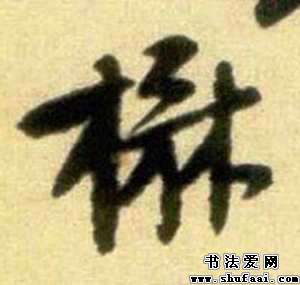 楙
书法爱网
www.shufaai.com